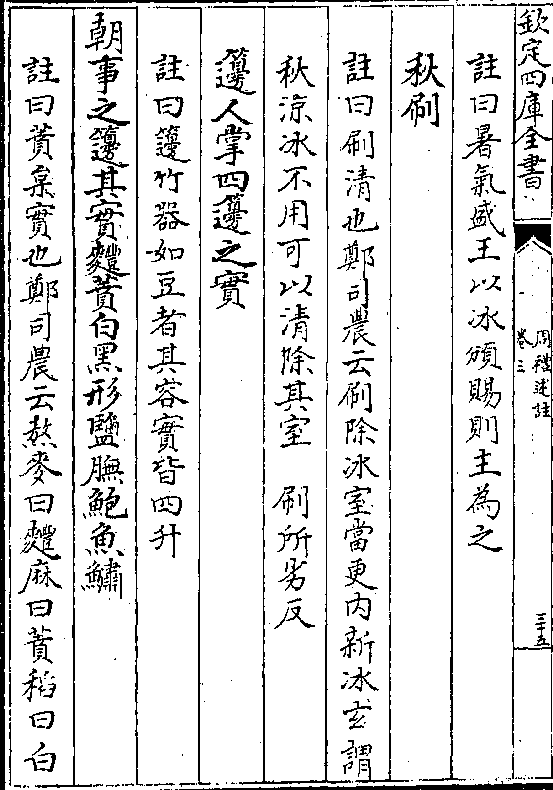 欽定四庫全書
周禮述註
卷三
三十五
註曰暑氣盛王以冰頒賜則主為之
秋刷
註曰刷清也鄭司農云刷除冰室當更內新冰玄謂
秋涼冰不用可以清除其室　刷所劣反
籩人掌四籩之實
註曰籩竹器如豆者其容實皆四升
朝事之籩其實麷蕡白黑形鹽膴鮑魚鱐
註曰蕡枲實也鄭司農云熬麥曰麷麻曰蕡稻曰白